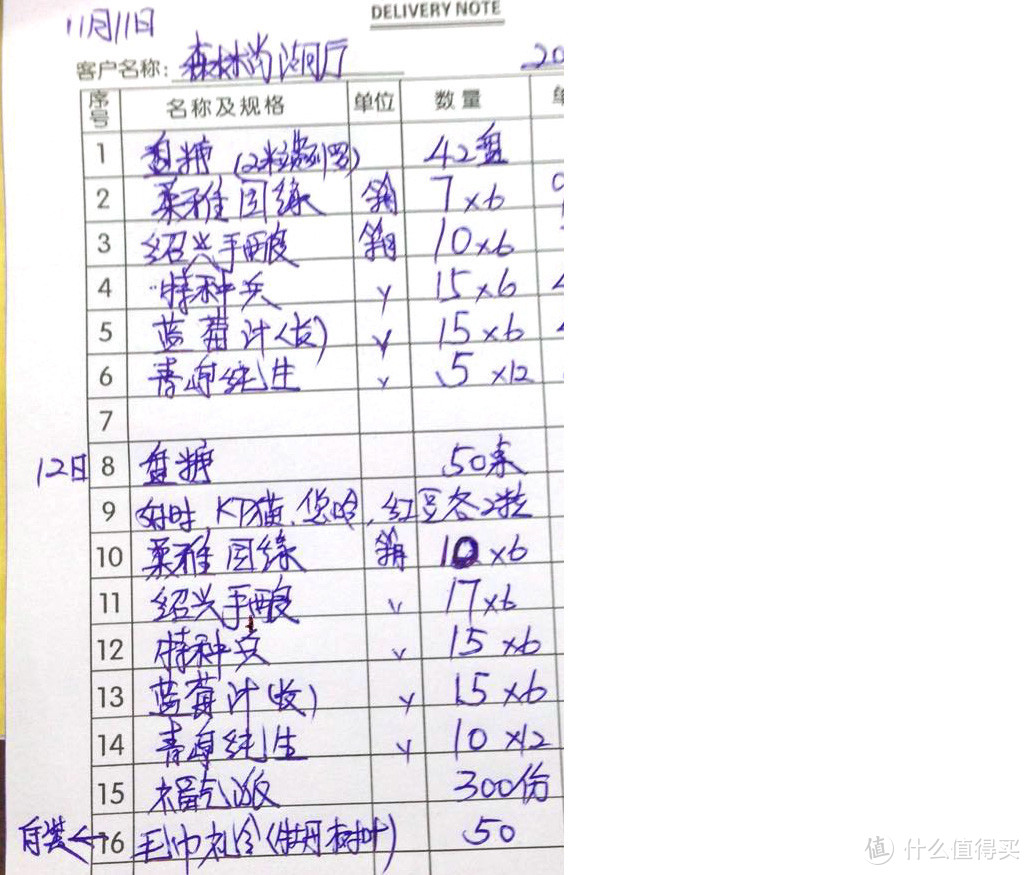 DELIVERY NOTE
11月11日
客户名称: 森林尚湖厅 20
序号 名称及规格 单位 数量
1 盘糖 42盘
2 柔雅回缘 箱 7×6
3 绍兴手酿 箱 10×6
4 特种兵 〃 15×6
5 蓝莓汁 〃 15×6
6 青岛纯生 〃 5×12
7
12日 8 盘糖 50桌
9 好时、KT猫、悠哈、红豆各2粒
10 柔雅回缘 箱 10×6
11 绍兴手酿 〃 17×6
12 特种兵 〃 15×6
13 蓝莓汁 〃 15×6
14 青岛纯生 〃 10×12
15 福气饭 300份
自装← 16 毛巾礼 50
值 什么值得买